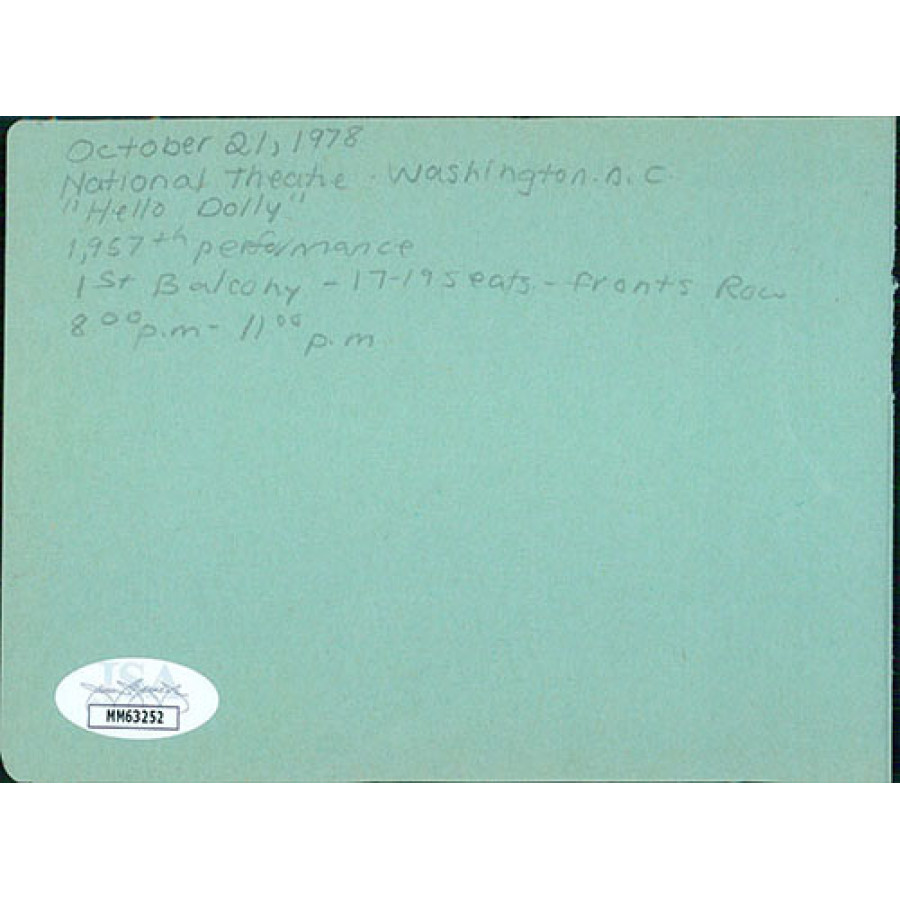 October 21, 1978
National Theatre - Washington. D. C.
"Hello Dolly"
1,957th performance
1st Balcony - 17-19 seats - fronts Row
8 00 p.m - 11 00 p.m
JSA
MM63252